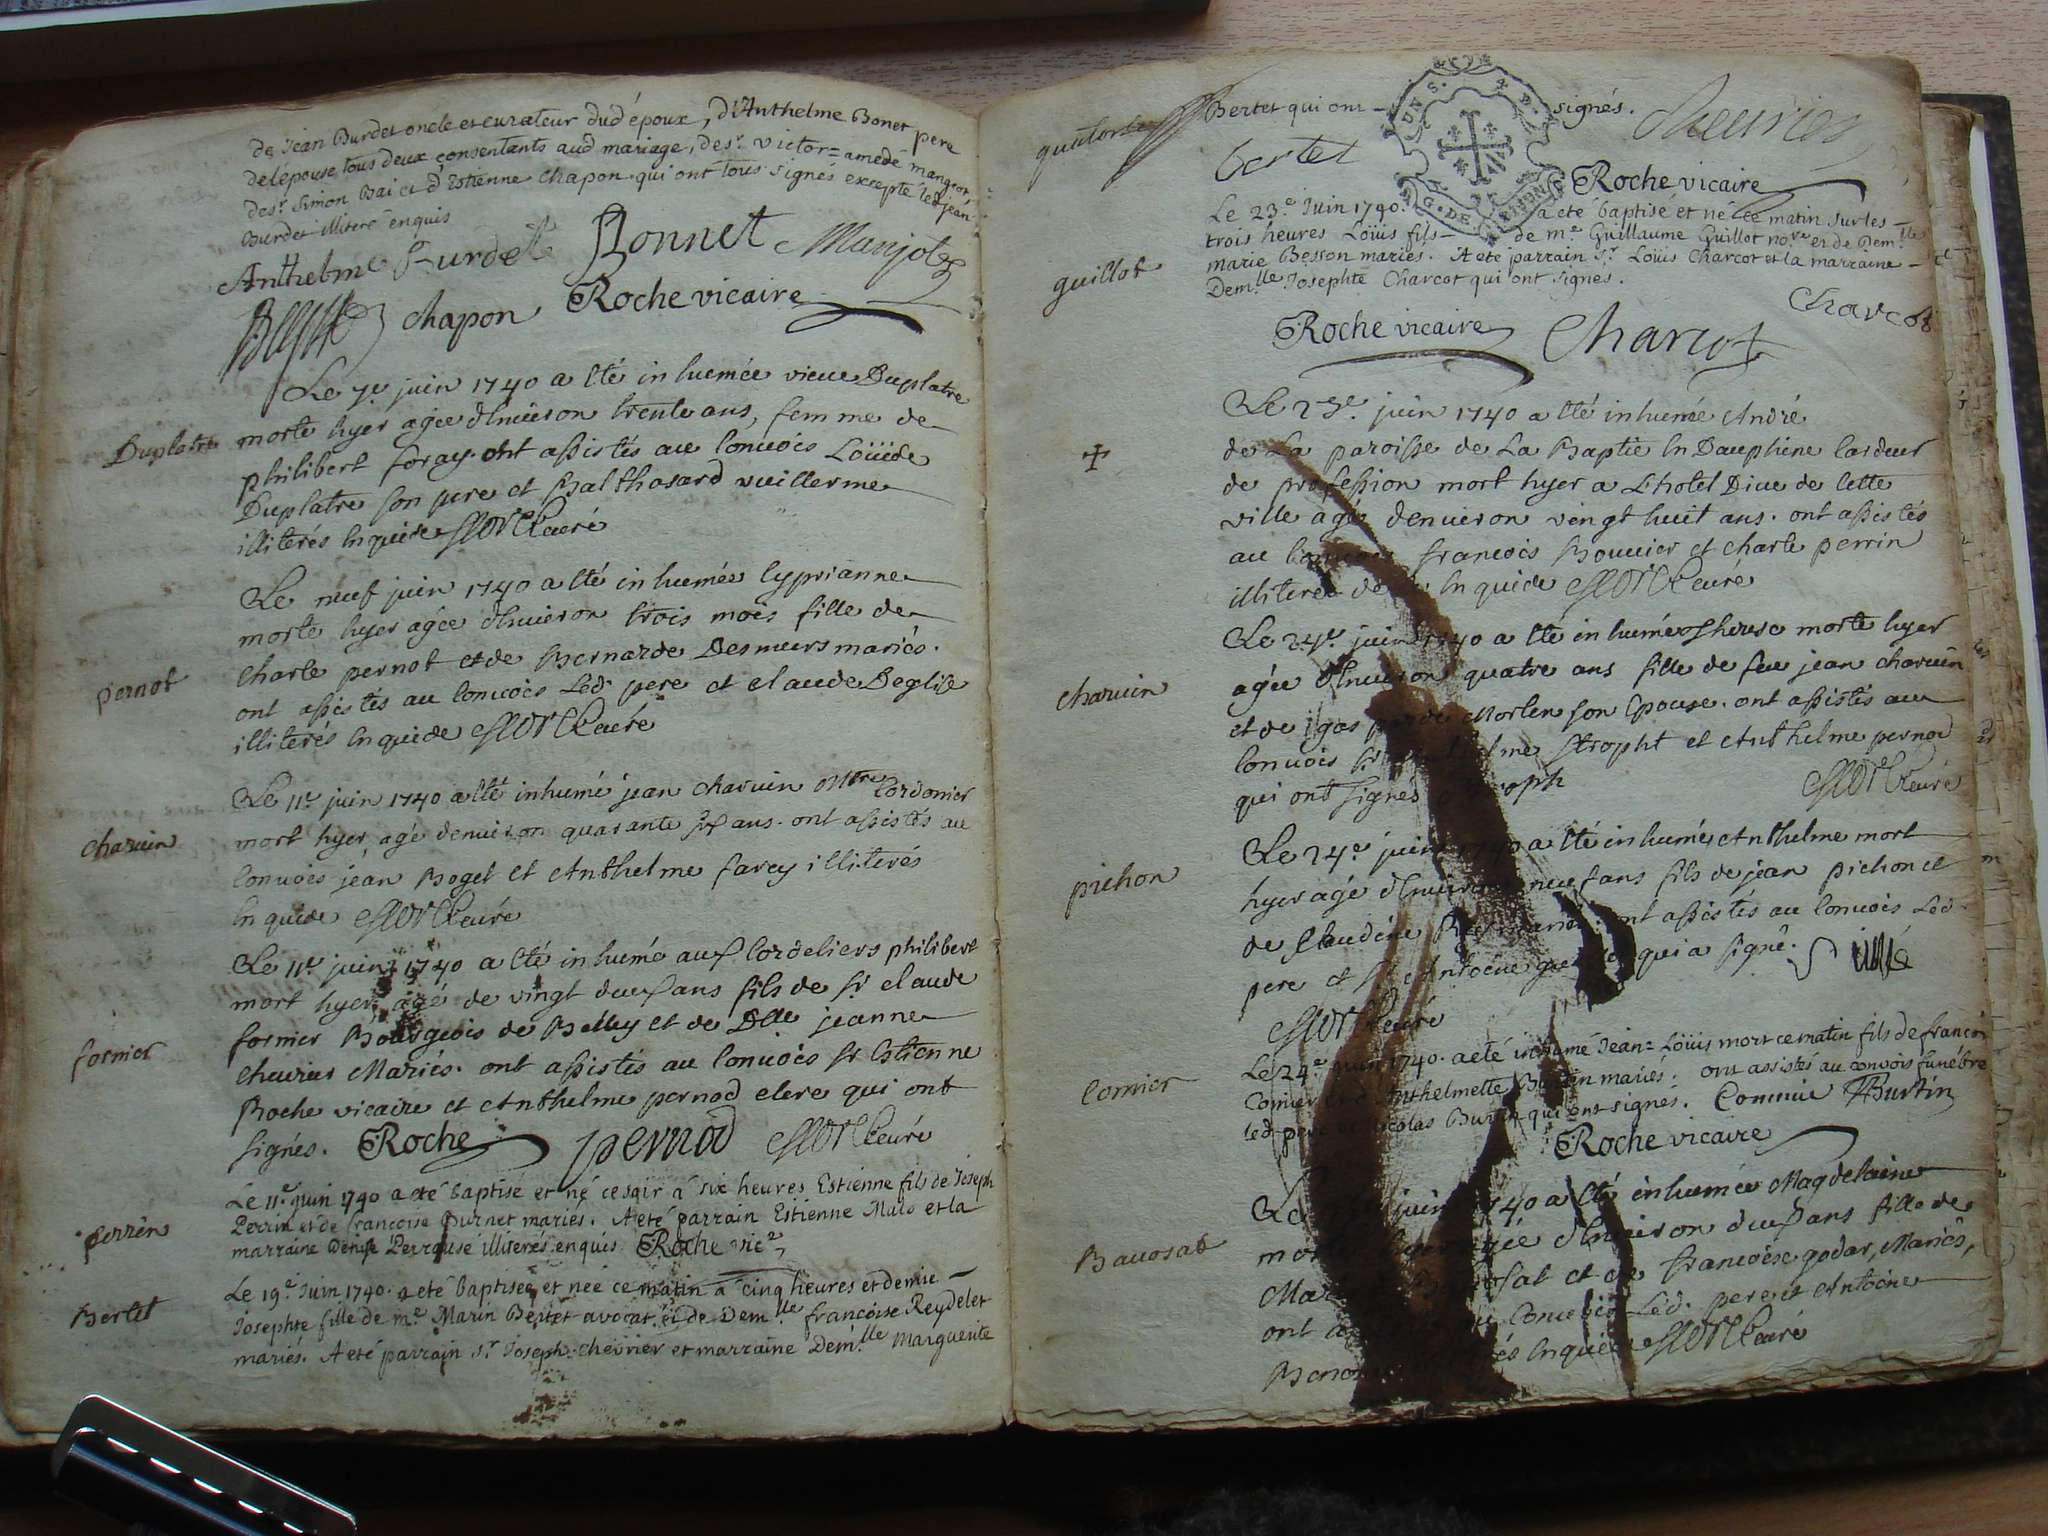 de Jean Burdet oncle et curateur dud époux, d'Anthelme Bonet pere
de lépouse tous deux consentants aud mariage, des.r victor=amedé mangeot,
des.r Simon Bai et d'Estienne Chapon qui ont tous signés excepté led jean
Burdet illiteré enquis
Anthelme Burdet Bonnet Manjot
chapon Roche vicaire
Duplatre
Le 7e juin 1740 a été inhumée vieue Duplatre
morte hyer agée d'enuiron trente ans, femme de
philibert foray. ont assistés au conuois Loüis de
Duplatre son pere et Balthasard vuillerme
illiterés enquis curé
pernot
Le neuf juin 1740 a été inhumée Cyprianne
morte hyer agée d'enuiron trois mois fille de
Charle pernot et de Bernarde Desmeurs mariés.
ont assistés au conuois Led. pere et claude Deglise
illiterés enquis de curé
charuin
Le 11e juin 1740 a été inhumé jean charuin mtre Cordonier
mort hyer, agé denuiron quarante six ans. ont assistés au
conuois jean Boget et Anthelme farcy illiterés
enquis de curé
fornier
Le 11e juin 1740 a été inhumé aux Cordeliers philibert
mort hyer, agé de vingt deux ans fils de sr claude
fornier Bourgeois de Belley et de Dlle jeanne
cheurier Mariés. ont assistés au conuois sr Estienne
Roche vicaire et Anthelme pernod clerc qui ont
signés. Roche pernod curé
perrin
Le 11.e juin 1740 a eté baptisé et né ce soir á six heures Estienne fils de Joseph
Perrin et de francoise Purnet mariés. A eté parrain Estienne Mulo et la
marraine Denise Perrouse illiterés enquis Roche vic.e
Bertet
Le 19.e Juin 1740. a eté baptisée et née ce matin á cinq heures et demie
Josephte fille de m.e Marin Bertet avocat et de Dem.lle francoise Reydelet
mariés. A eté parrain s.r Joseph Chevrier et marraine Dem.lle Marguerite
quatorze
Bertet qui ont signés.
bertet cheurier
Roche vicaire
G. DE DIJON
guillot
Le 23.e Juin 1740. a eté baptisé et né ce matin sur les
trois heures Loüis fils de m.e Guillaume Guillot no.re et de Dem.lle
Marie Besson mariés. A eté parrain s.r Loüis Charcot et la marraine
Dem.lle Josephte Charcot qui ont signés.
Charcot
Roche vicaire Charcot
Le 23e. juin 1740 a été inhumé André
de La paroisse de La Baptie en Dauphine Cardeur
de profession mort hyer a L'hotel Dieu de Cette
ville agé denuiron vingt huit ans. ont assistés
au francois Bouuier et charle perrin
illiterés de enquis de curé
charuin
Le 24e. juin 1740 a été inhumée Therese morte hyer
agée d'enuiron quatre ans fille de feu jean charuin
et de Morten son Epouse. ont assistés au
conuois sr Stropht et Anthelme pernod
qui ont signés curé
pichon
Le 24e. juin 1740 a été inhumé Anthelme mort
hyer agé d'enuiron neuf ans fils de jean pichon et
de Claudine mariés. ont assistés au conuois Led.
pere et sr Antoine qui a signé.
curé
Comier
Le 24.e juin 1740. a eté inhumé Jean=Loüis mort ce matin fils de francois
Comier et d'Anthelmette Burtin mariés. ont assisté au convois funébre
led pere et Nicolas Burtin qui ont signés. Commie Burtin
Roche vicaire
Bauosat
Le juin 1740 a été inhumée Magdelaine
morte hyer agée d'enuiron deux ans fille de
et de francoise godar, Mariés,
ont conuois Led. pere et Antoine
enquis curé